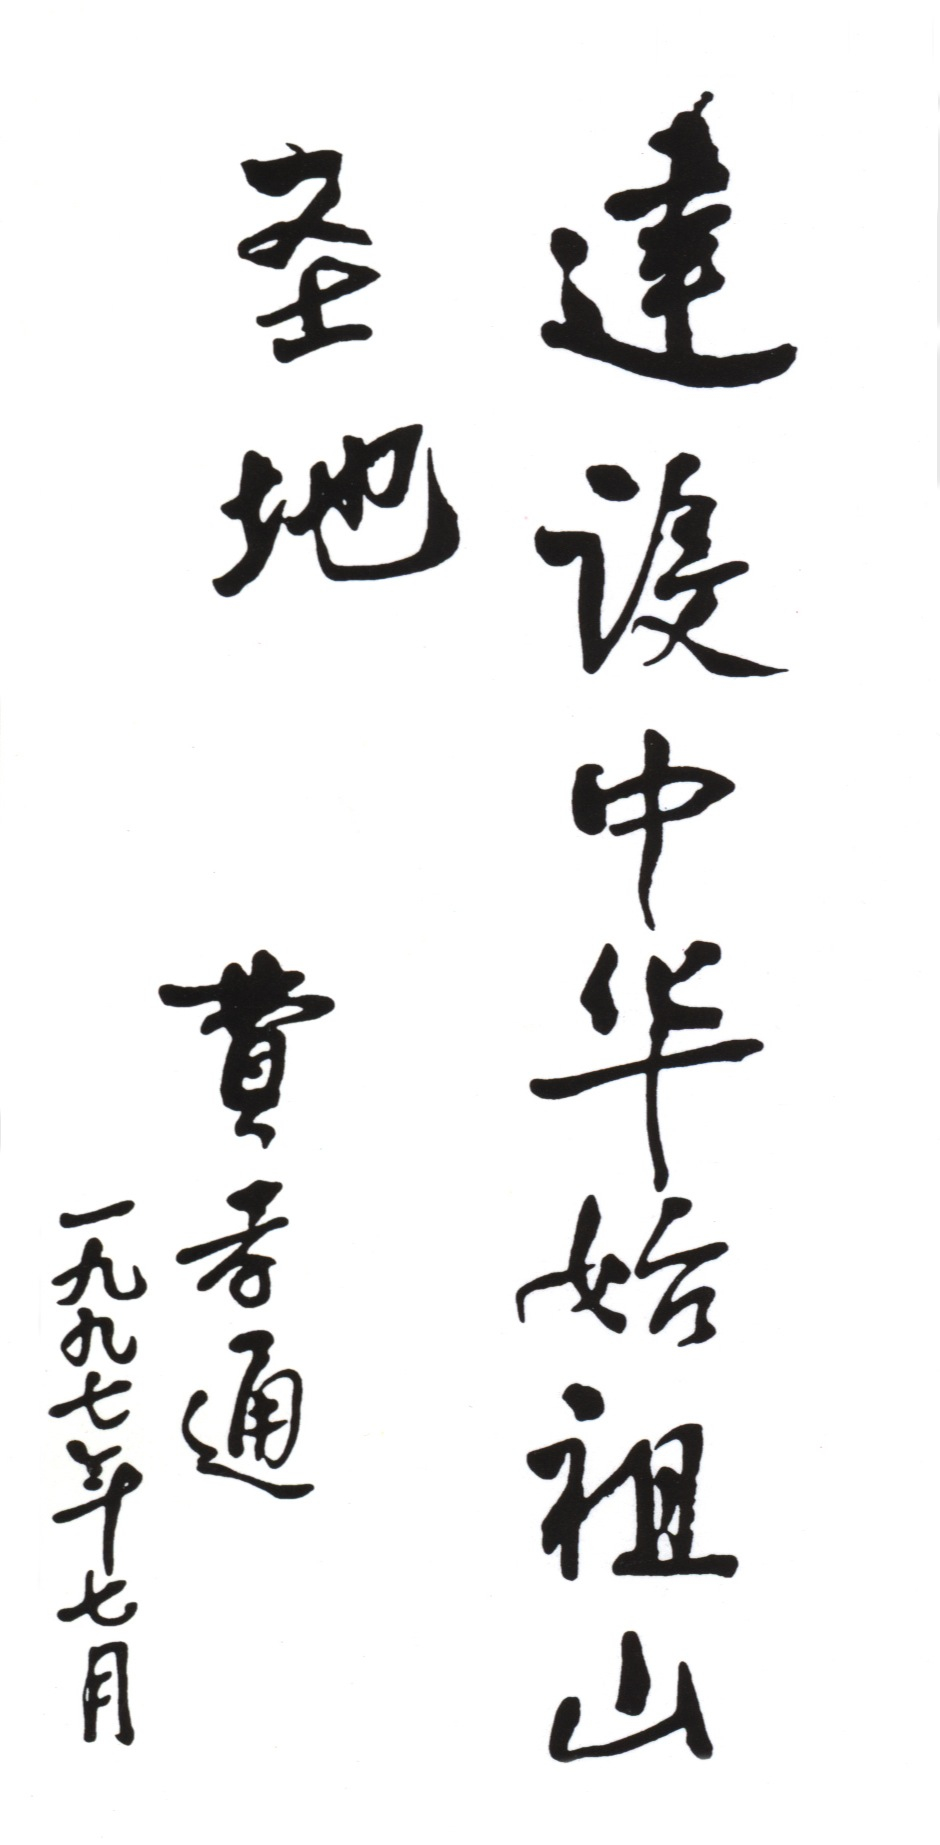 建设中华始祖山
圣地
費孝通
一九九七年七月